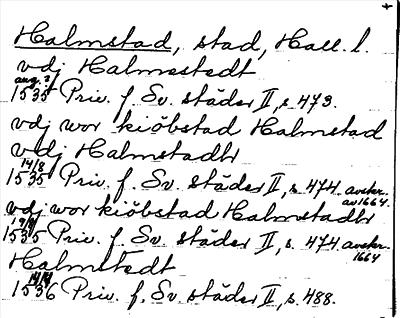 Halmstad, stad, Hall. l.
vdj Halmestedt
aug. 2
1535 Priv. f. Sv. städer II, s. 473.
vdj wor kiöbstad Halmstad
vdj Halmstadhr
14/8
1535 Priv. f. Sv. städer II, s. 474. avskr.
av 1664.
vdj wor kiöbstad Halmstadhr
1535 Priv. f. Sv. städer II, s. 474. avskr.
1664
Halmstedt
14/4
1536 Priv. f. Sv. städer II, s. 488.